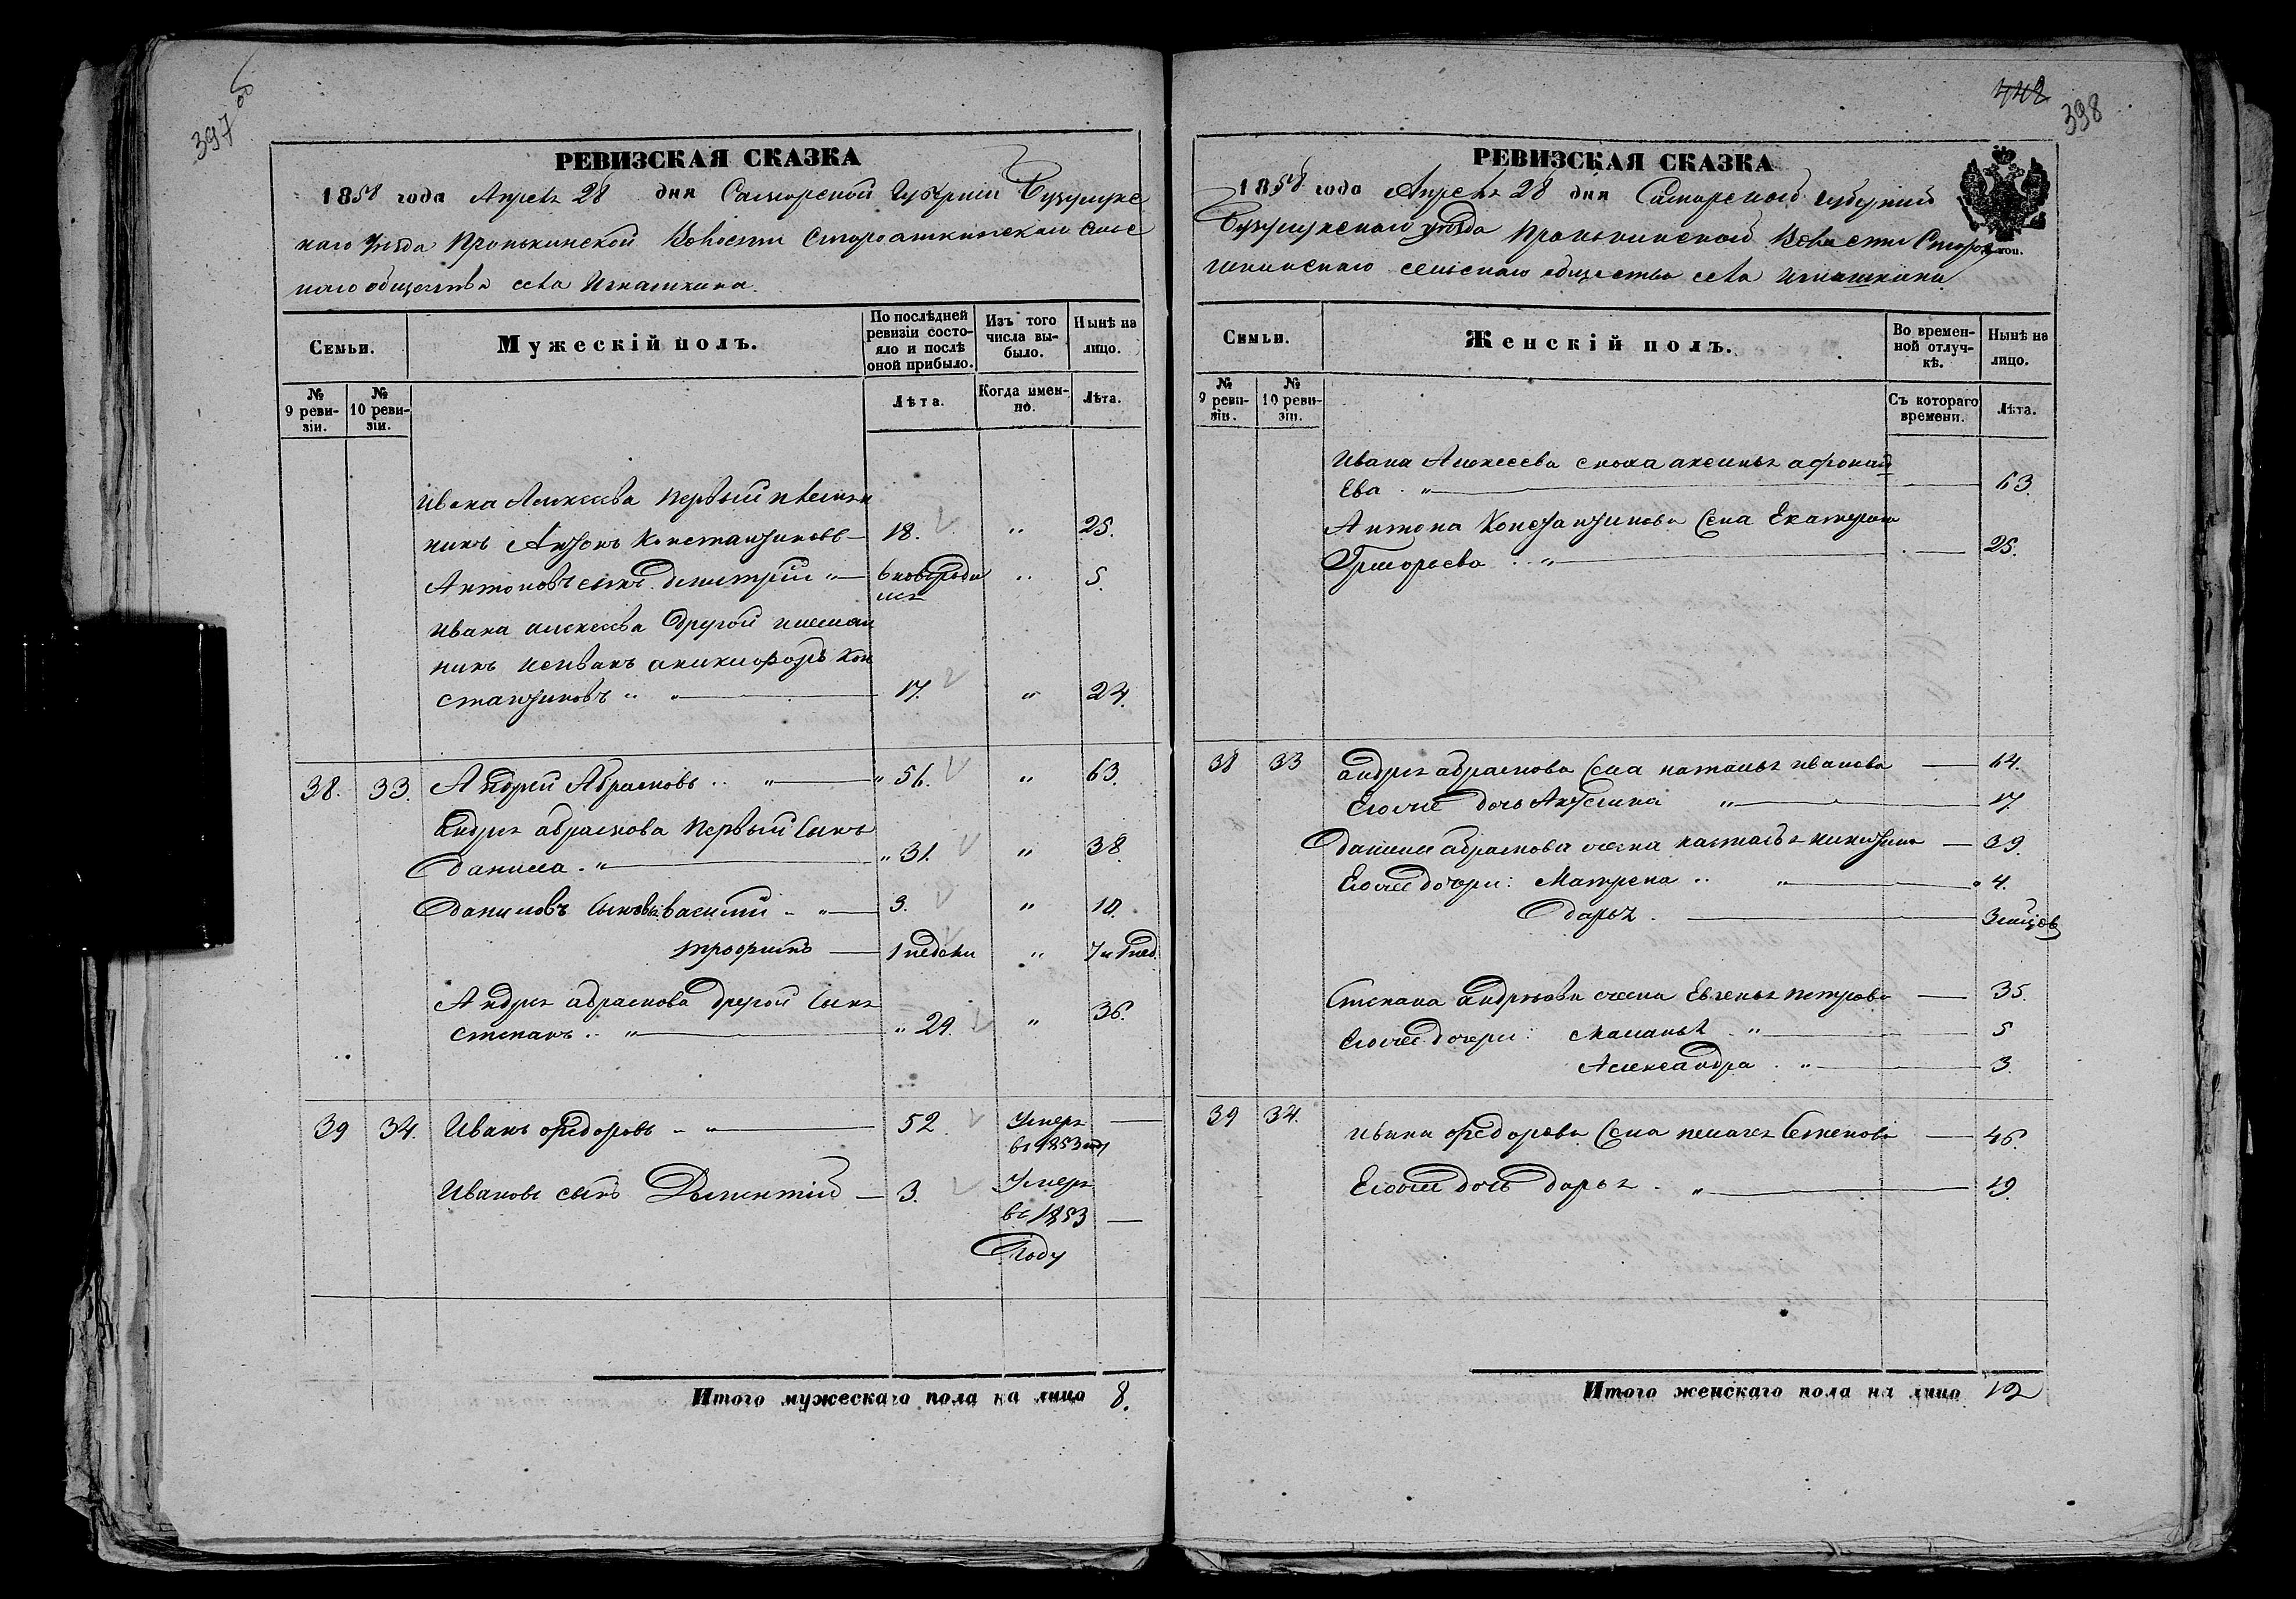 397 об
РЕВИЗСКАЯ СКАЗКА
1858 года Апреля 28 дня Самарской Губерніи Бузулукс
каго Уезда Пронькинской Волости Староашкинскаго Сельс
каго общества села Игнашкина.
Семьи.
Мужескій полъ.
По послѣдней
ревизіи состо-
яло и послѣ
оной прибыло.
Изъ того
числа вы-
было.
Нынѣ на
лицо.
№
9 реви-
зіи.
№
10 реви-
зіи.
Лѣта.
Когда имен-
но.
Лѣта.
Ивана Алексеева первый племян
никъ Антонъ Константиновъ 18. " 25.
Антоновъ сынъ Дмитрій " " 5.
Ивана Алексеева другой племян
никъ Кон
стантиновъ " " 17. " 24.
38. 33. Андрей Абрамовъ " 56. " 63.
Андрея абрамова первый сынъ
Данила " 31. " 38.
Даниловъ сыновья василий " 3. " 10.
трофимъ 1 недели " 7 и 1 нед.
Андрея абрамова другой сынъ
степанъ " 29. " 36.
39 34. Иванъ Федоровъ " 52. Умеръ
въ 1853 году
Ивановъ сынъ 3. Умеръ
въ 1853
Году
Итого мужескаго пола на лицо 8.
442
398
РЕВИЗСКАЯ СКАЗКА
1858 года Апреля 28 дня Самарской губерніи
Бузулукскаго уезда Пронькинской Волости Староа
шкинскаго сельскаго общества села Игнашкина
Семьи.
Женскій полъ.
Во времен-
ной отлуч-
кѣ.
Нынѣ на
лицо.
№
9 реви-
зіи.
№
10 реви-
зіи.
Съ котораго
времени.
Лѣта.
Ивана Алексеева сноха аксинья афонась
Ева " 63.
Антона Константинова Жена Екатерина
Григорьева " 25.
38 33 андрея абрамова Жена наталья иванова 64.
Его же дочь Акулина " 17
Данилы абрамова жена настасья никитина 39.
Его же дочери: Матрена " 4.
дарья 3 месяцов
Степана андреева жена Евгенья петрова 35.
Его же дочери: Маланья " 5
Александра " 3.
39 34. ивана федорова Жена пелагея Семенова 46.
Его же дочь дарья " 19.
Итого женскаго пола на лицо 12